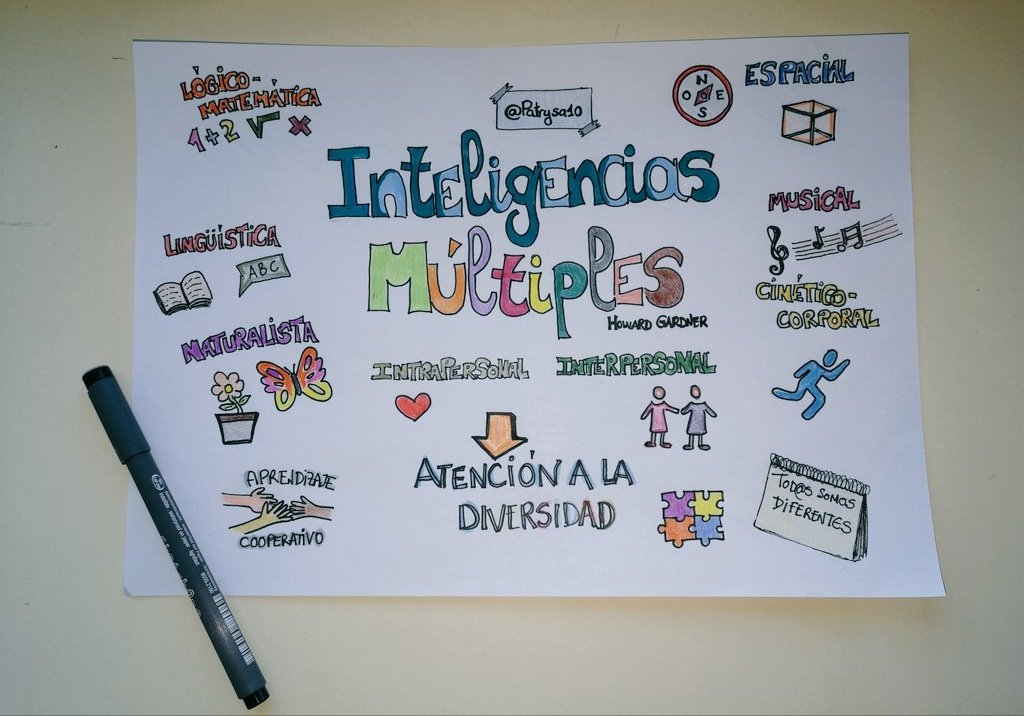 LÓGICO-
MATEMÁTICA
1+2 √ x
@Patrysa10
N
O E
S
ESPACIAL
INTELIGENCIAS
MÚLTIPLES
HOWARD GARDNER
LINGÜÍSTICA
ABC
MUSICAL
CINÉTICO-
CORPORAL
NATURALISTA
INTRAPERSONAL
INTERPERSONAL
APRENDIZAJE
COOPERATIVO
ATENCIÓN A LA
DIVERSIDAD
TOD@S SOMOS
DIFERENTES